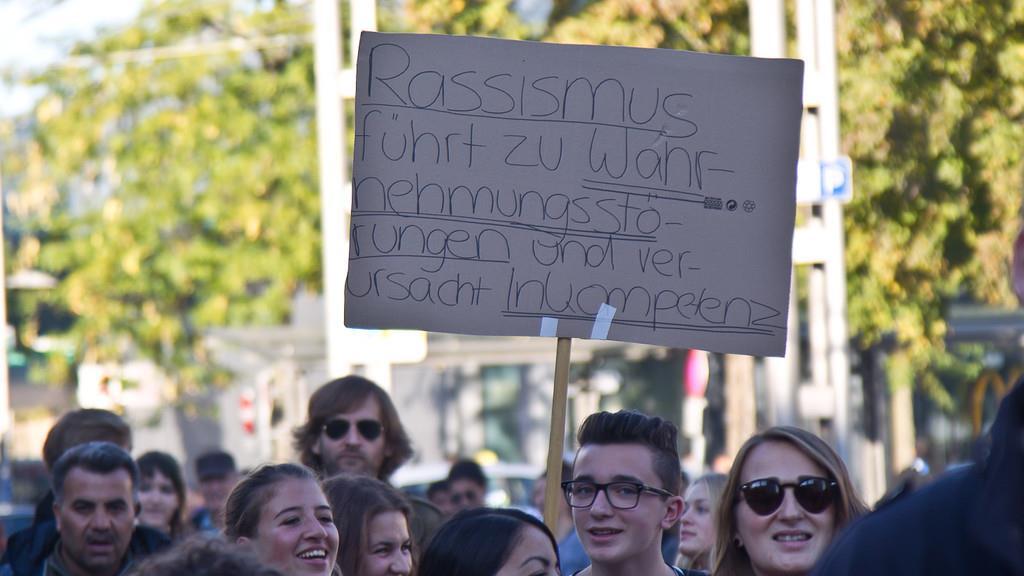 Rassismus
führt zu Wahr-
nehmungsstö-
rungen und ver-
ursacht Inkompetenz
P